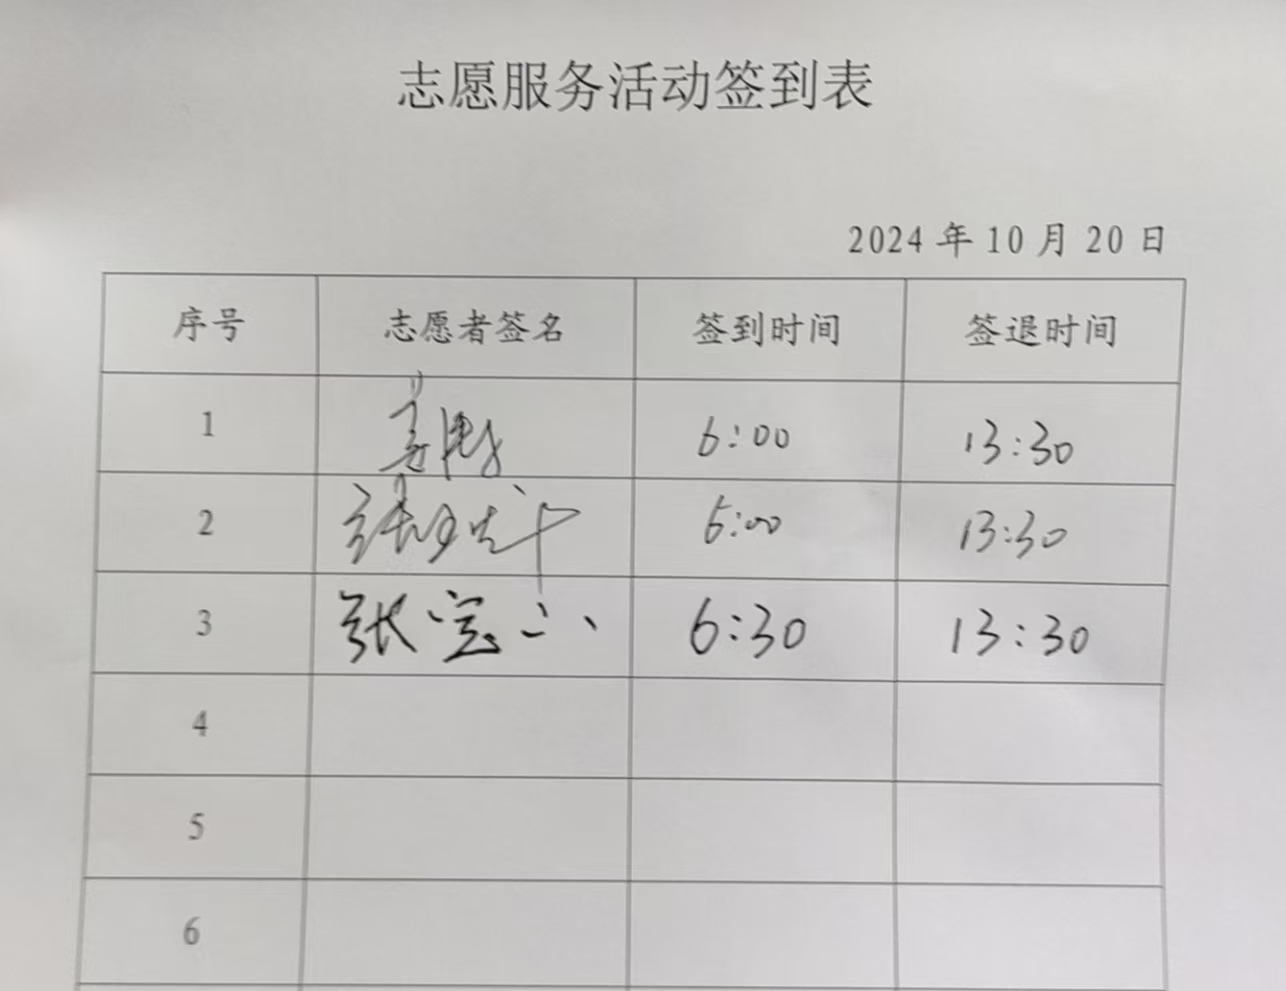 志愿服务活动签到表
2024 年 10 月 20 日
序号 志愿者签名 签到时间 签退时间
1 6:00 13:30
2 张 6:00 13:30
3 张宝 6:30 13:30
4
5
6